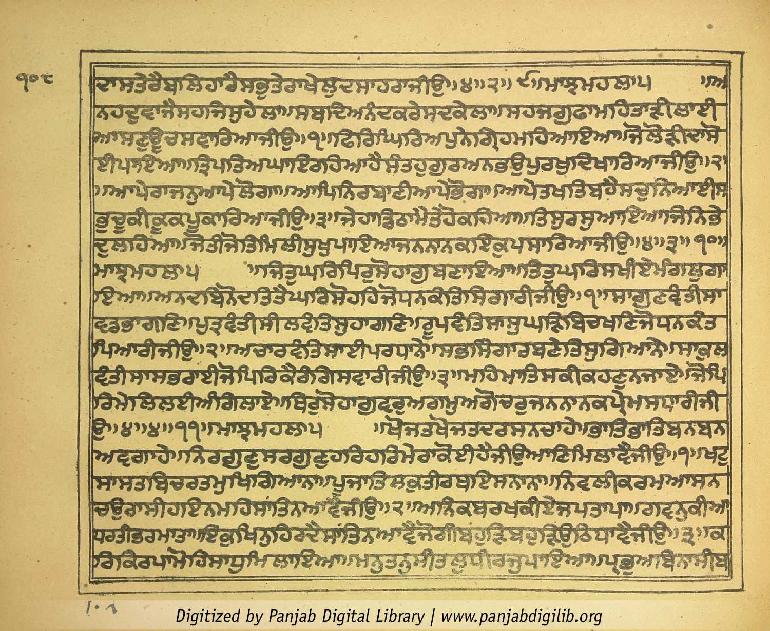 ੧੦੮
ਦਾਸਤੇਰੈਬਲਿਹਾਰੈਸਭੁਤੇਰਾਖੇਲੁਦਸਾਹਰਾਜੀਉ॥੪॥੨॥੯॥ਮਾਝਮਹਲਾ੫ ॥ਅ
ਨਹਦੁਵਾਜੈਸਹਜਿਸੁਹੇਲਾ॥ਸਬਦਿਅਨੰਦਕਰੇਸਦਕੇਲਾ॥ਸਹਜਗੁਫਾਮਹਿਤਾੜੀਲਾਈ
ਆਸਣੁਊਚਸਵਾਰਿਆਜੀਉ॥੧॥ਫਿਰਿਘਿਰਿਅਪੁਨੇਗ੍ਰਿਹਮਹਿਆਇਆ॥ਜੋਲੋੜੀਦਾਸੋ
ਈਪਾਇਆ॥ਤ੍ਰਿਪਤਿਅਘਾਇਰਹਿਆਹੈਸੰਤਹੁਗੁਰਿਅਨਭਉਪੁਰਖੁਦਿਖਾਰਿਆਜੀਉ॥੨
॥ਆਪੇਰਾਜਨੁਆਪੇਲੋਗਾ॥ਆਪਿਨਿਰਬਾਣੀਆਪੇਭੋਗਾ॥ਆਪੇਤਖਤਿਬਹੈਸਚੁਨਿਆਈਸ
ਭਚੂਕੀਕੂਕਪੁਕਾਰਿਆਜੀਉ॥੩॥ਜੇਹਾਡਿਠਾਮੈਤੇਹੋਕਹਿਆ॥ਤਿਸੁਰਸੁਆਇਆਜਿਨਿਭੇ
ਦੁਲਹਿਆ॥ਜੋਤੀਜੋਤਿਮਿਲੀਸੁਖੁਪਾਇਆਜਨਨਾਨਕਇਕੁਪਸਾਰਿਆਜੀਉ॥੪॥੩॥੧੦॥
ਮਾਝਮਹਲਾ੫ ॥ਜਿਤੁਘਰਿਪਿਰਿਸੋਹਾਗੁਬਣਾਇਆ॥ਤਿਤੁਘਰਿਸਖੀਏਮੰਗਲੁਗਾ
ਇਆ॥ਅਨਦਬਿਨੋਦਤਿਤੈਘਰਿਸੋਹਹਿਜੋਧਨਕੰਤਿਸਿਗਾਰੀਜੀਉ॥੧॥ਸਾਗੁਣਵੰਤੀਸਾ
ਵਡਭਾਗਣਿ॥ਪੁਤ੍ਰਵੰਤੀਸੀਲਵੰਤਿਸੁਹਾਗਣਿ॥ਰੂਪਵੰਤਿਸਾਸੁਘੜਿਬਿਚਖਣਿਜੋਧਨਕੰਤ
ਪਿਆਰੀਜੀਉ॥੨॥ਅਚਾਰਵੰਤਿਸਾਈਪਰਧਾਨੇ॥ਸਭਸਿੰਗਾਰਬਣੇਤਿਸੁਗਿਆਨੇ॥ਸਾਕੁਲ
ਵੰਤੀਸਾਸਭਰਾਈਜੋਪਿਰਿਕੈਰੰਗਿਸਵਾਰੀਜੀਉ॥੩॥ਮਹਿਮਾਤਿਸਕੀਕਹਣੁਨਜਾਏ॥ਜੋਪਿ
ਰਿਮੇਲਿਲਈਅੰਗਿਲਾਏ॥ਥਿਰੁਸੋਹਾਗੁਵਰੁਅਗਮੁਅਗੋਚਰੁਜਨਨਾਨਕਪ੍ਰੇਮਸਾਧਾਰੀਜੀ
ਉ॥੪॥੪॥੧੧॥ਮਾਝਮਹਲਾ੫ ॥ਖੋਜਤਖੋਜਤਦਰਸਨਚਾਹੇ॥ਭਾਤਿਭਾਤਿਬਨਬਨ
ਅਵਗਾਹੇ॥ਨਿਰਗੁਣੁਸਰਗੁਣੁਹਰਿਹਰਿਮੇਰਾਕੋਈਹੈਜੀਉਆਣਿਮਿਲਾਵੈਜੀਉ॥੧॥ਖਟੁ
ਸਾਸਤਬਿਚਰਤਮੁਖਿਗਿਆਨਾ॥ਪੂਜਾਤਿਲਕੁਤੀਰਥਇਸਨਾਨਾ॥ਨਿਵਲੀਕਰਮਆਸਨ
ਚਉਰਾਸੀਹਇਨਮਹਿਸਾਂਤਿਨਆਵੈਜੀਉ॥੨॥ਅਨਿਕਬਰਖਕੀਏਜਪਤਾਪਾ॥ਗਵਨੁਕੀਆ
ਧਰਤੀਭਰਮਾਤਾ॥ਇਕੁਖਿਨੁਹਿਰਦੈਸਾਂਤਿਨਆਵੈਜੋਗੀਬਹੁੜਿਬਹੁੜਿਉਠਿਧਾਵੈਜੀਉ॥੩॥ਕ
ਰਿਕਿਰਪਾਮੋਹਿਸਾਧੁਮਿਲਾਇਆ॥ਮਨੁਤਨੁਸੀਤਲੁਧੀਰਜੁਪਾਇਆ॥ਪ੍ਰਭੁਅਬਿਨਾਸੀਬ
੧੦੧
Digitized by Panjab Digital Library | www.panjabdigilib.org